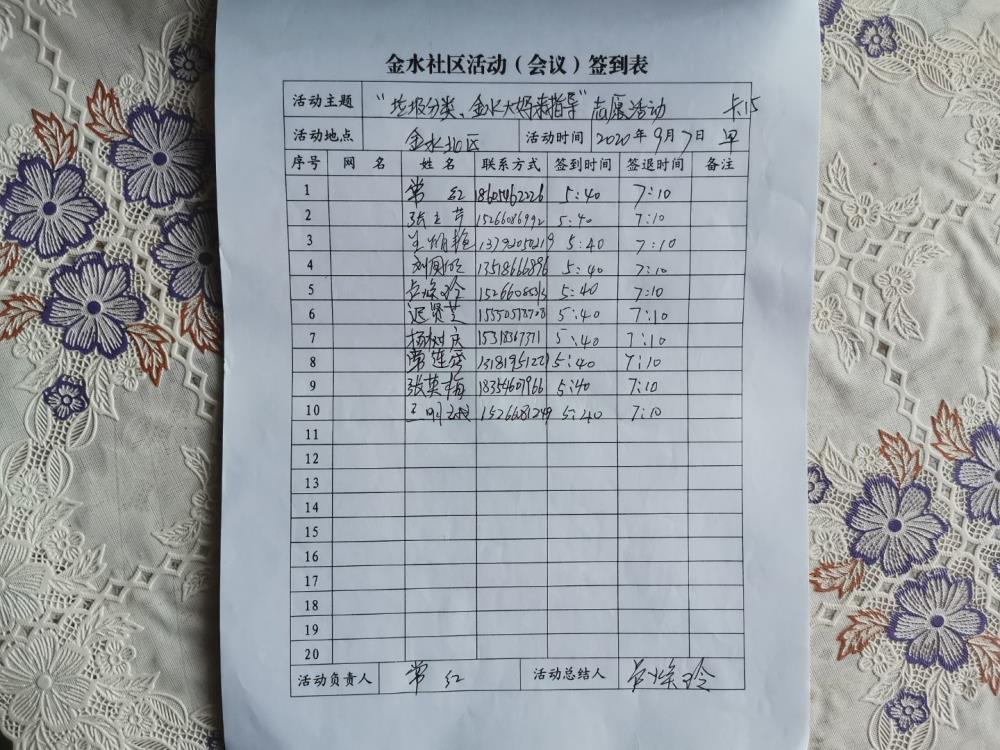 金水社区活动（会议）签到表
活动主题 "垃圾分类、金水大妈来指导"志愿活动 卡15
活动地点 金水北区 活动时间 2020年9月7日 早
序号 网 名 姓 名 联系方式 签到时间 签退时间 备注
1 常 红 18605462226 5:40 7:10
2 15266086992 5:40 7:10
3 13792050219 5:40 7:10
4 13518666896 5:40 7:10
5 5:40 7:10
6 迟贤芝 5:40 7:10
7 杨树庆 5:40 7:10
8 常连 5:40 7:10
9 张英梅 5:40 7:10
10 15266081249 5:40 7:10
11
12
13
14
15
16
17
18
19
20
活动负责人 常 红 活动总结人 焕玲